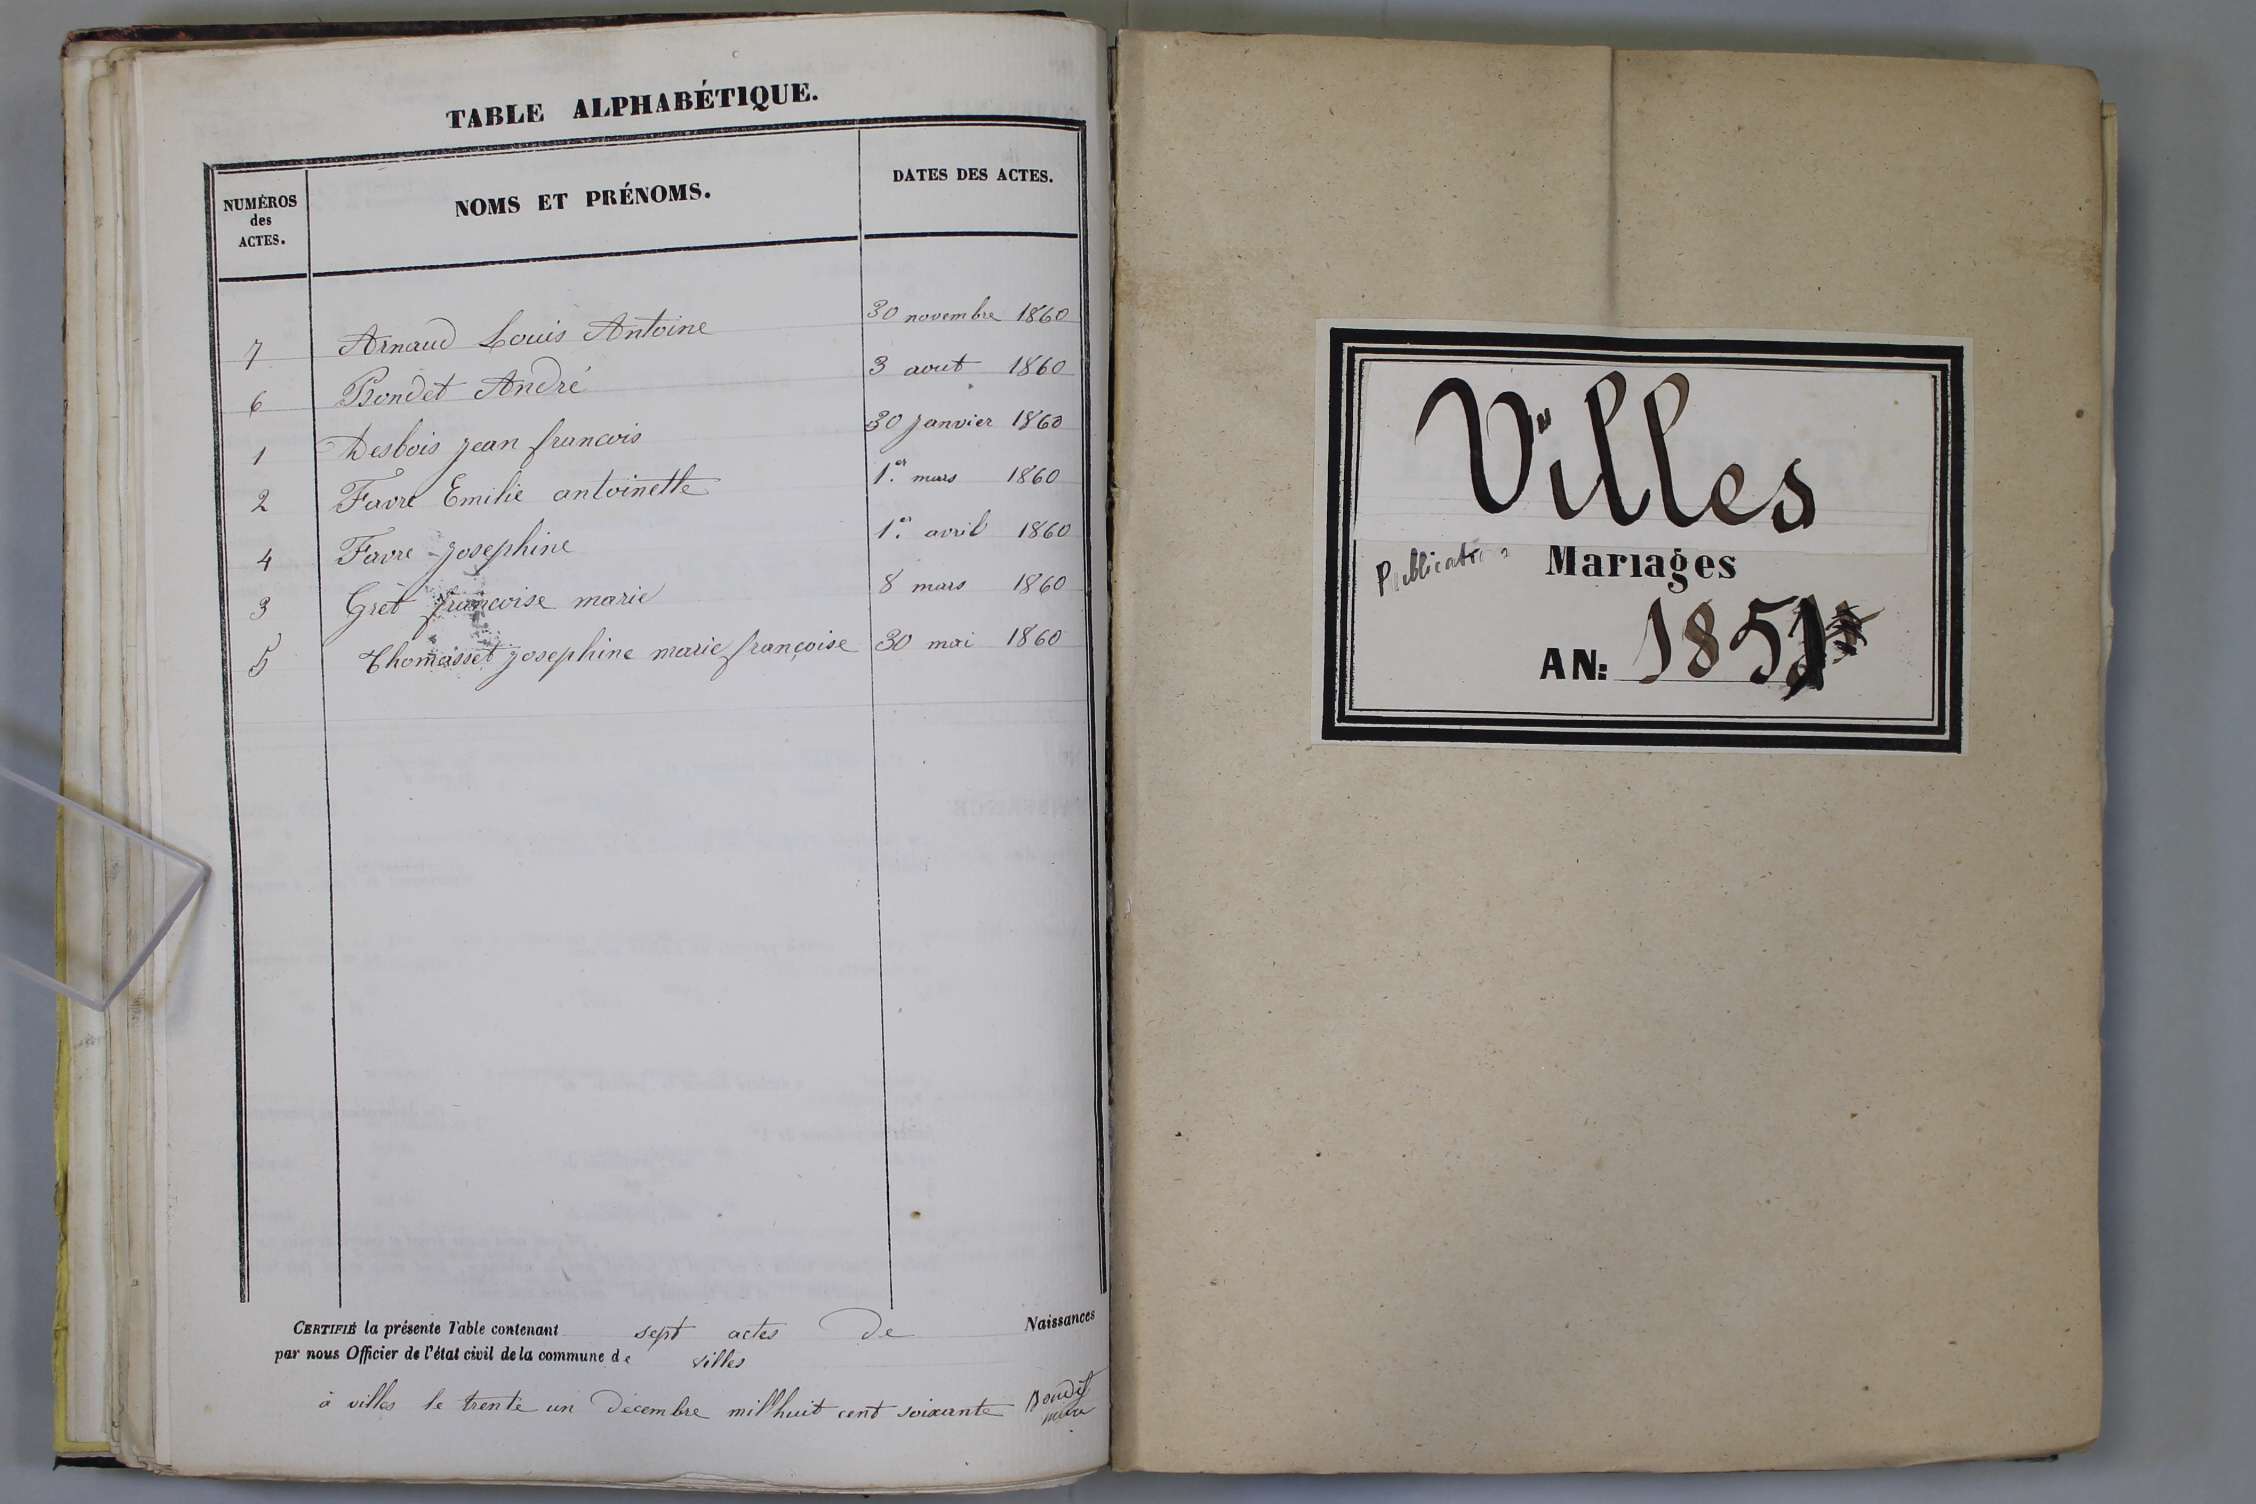 TABLE ALPHABÉTIQUE.
NUMÉROS
des
ACTES.
NOMS ET PRÉNOMS.
DATES DES ACTES.
7 Arnaud Louis Antoine 30 novembre 1860
6 Bondet André 3 aout 1860
1 Desbois jean francois 30 janvier 1860
2 Favre Emilie antoinette 1er mars 1860
4 Favre josephine 1er avril 1860
3 Gret françoise marie 8 mars 1860
5 Thomasset josephine marie françoise 30 mai 1860
CERTIFIÉ la présente Table contenant sept actes de Naissances
par nous Officier de l'état civil de la commune de villes
à villes le trente un décembre mil huit cent soixante
Villes
Publications Mariages
AN: 185